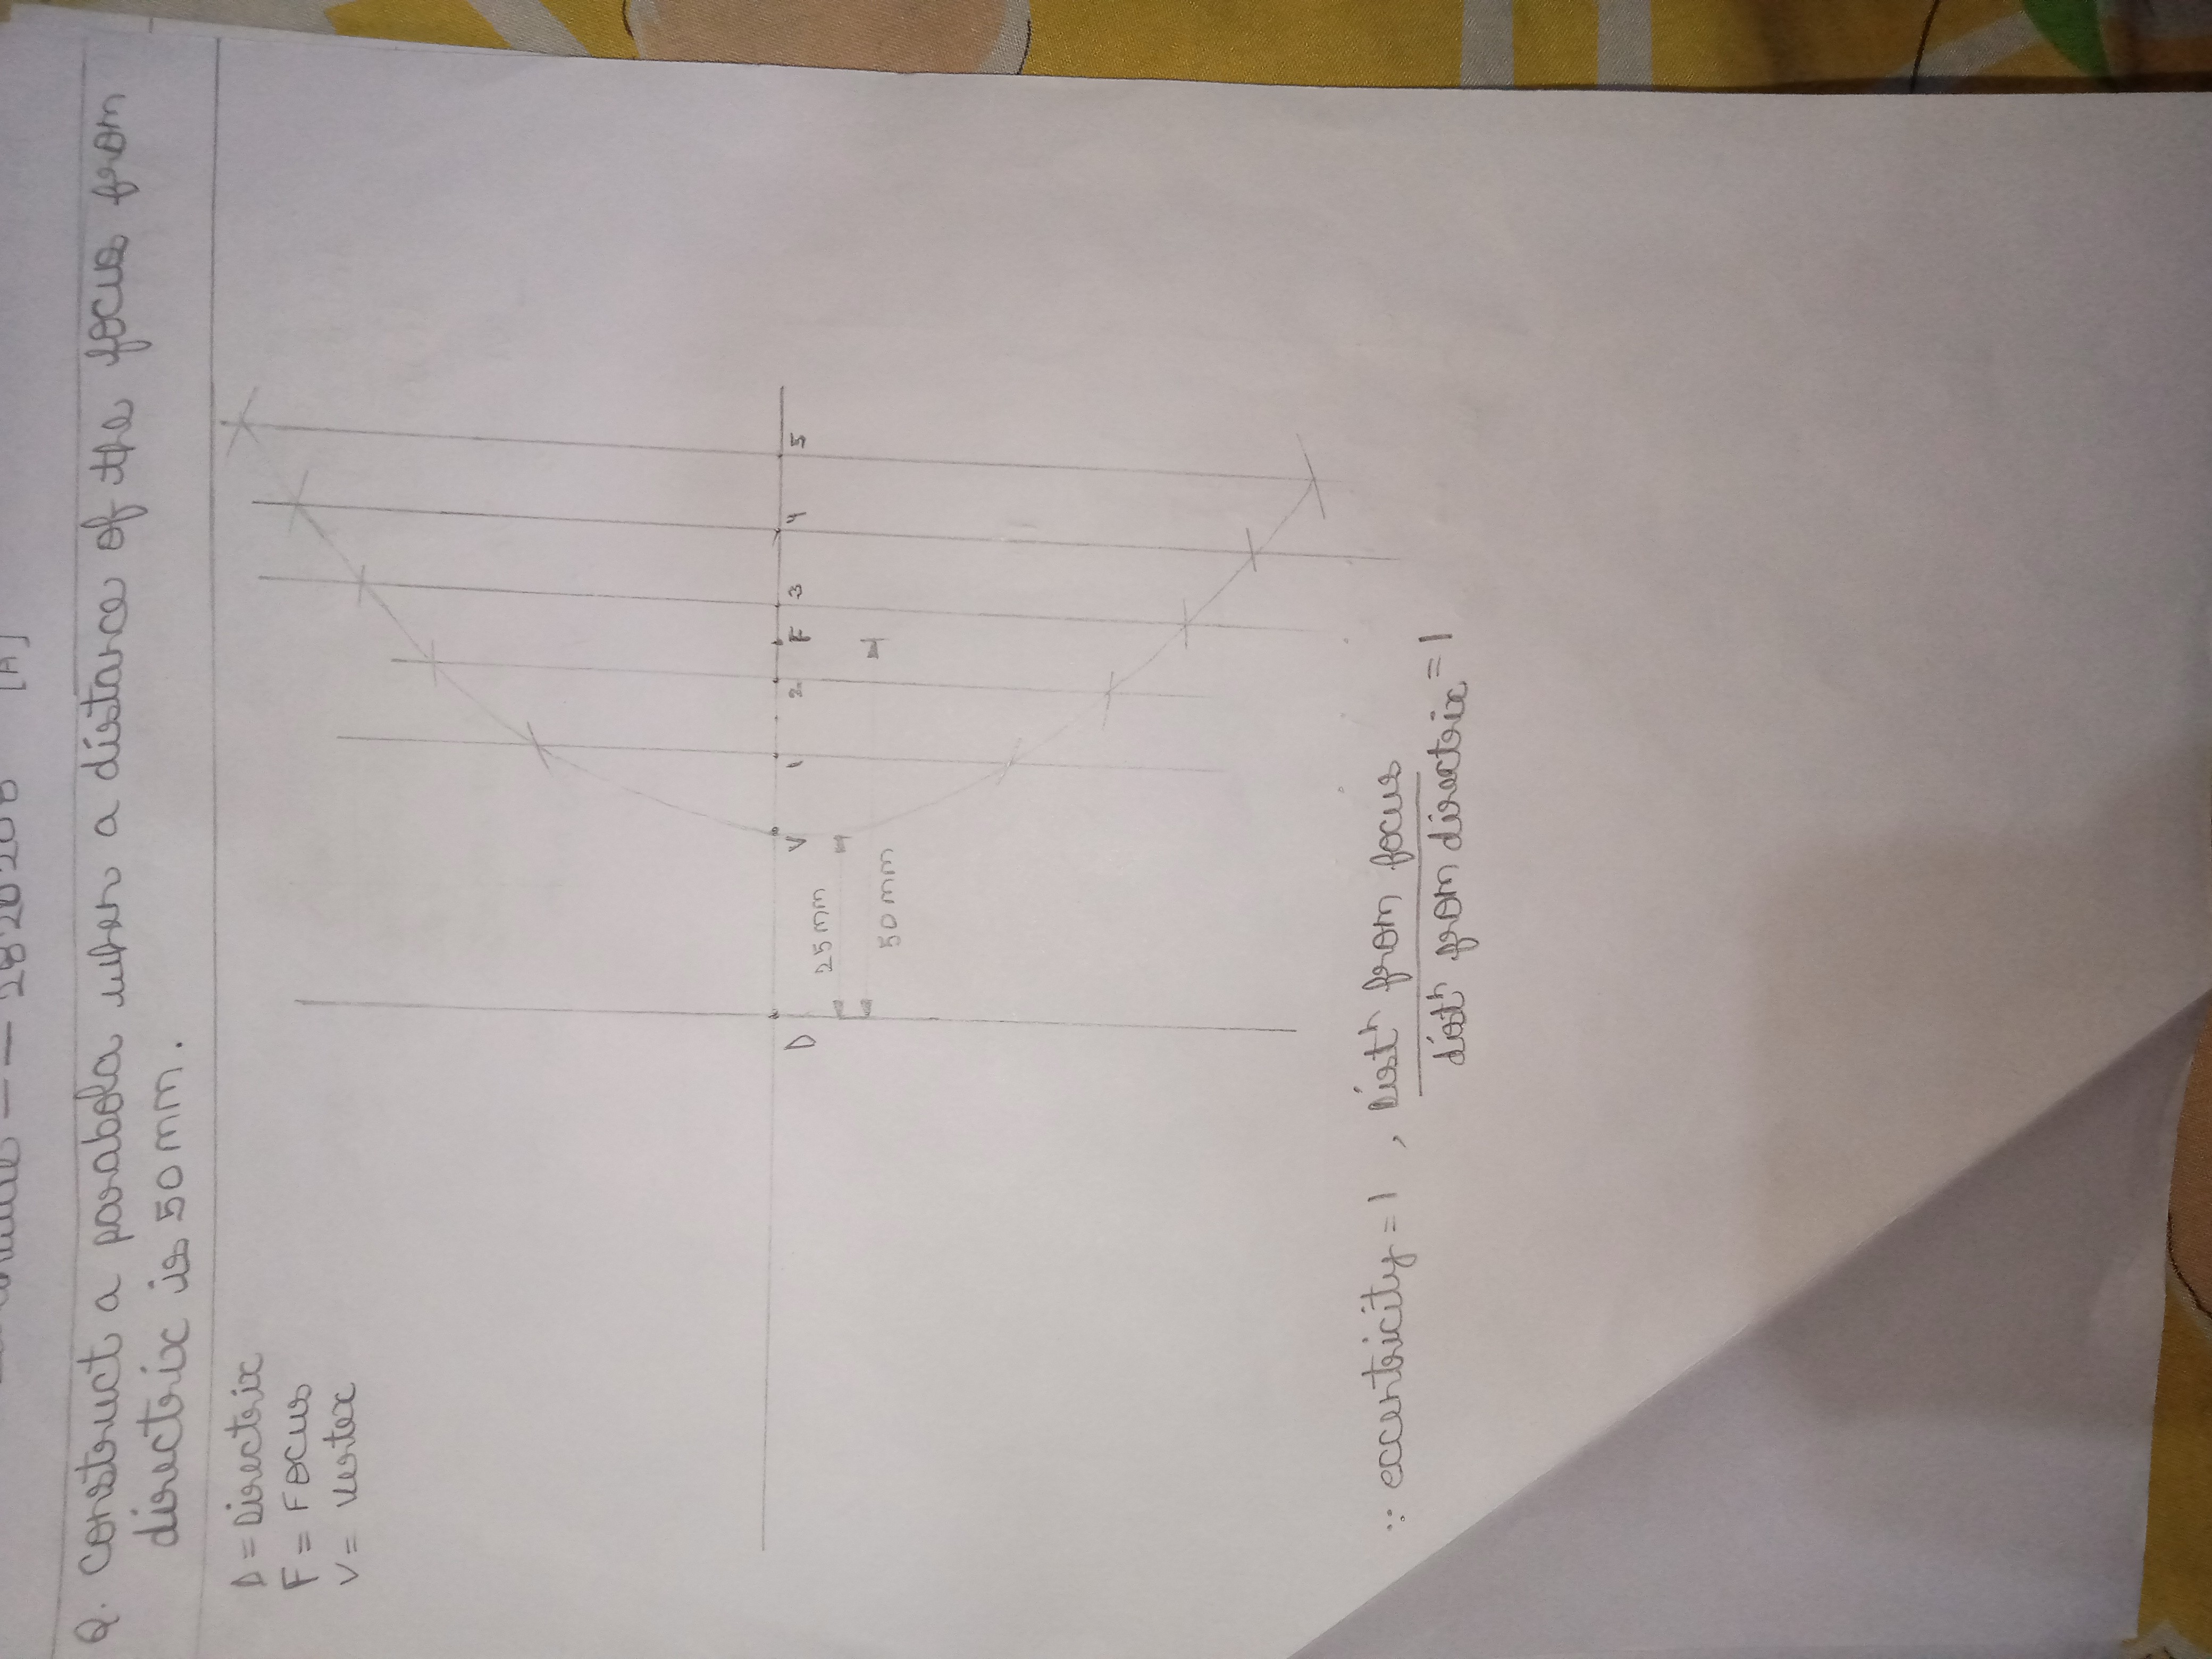 2820208 [A]
Q. Construct a parabola when a distance of the focus from
directrix is 50mm.
D = Directrix
F = Focus
V = Vertex
D
V
1
2
F
3
4
5
25mm
50mm
∵ eccentricity = 1 , Distⁿ from focus
distⁿ from directrix = 1